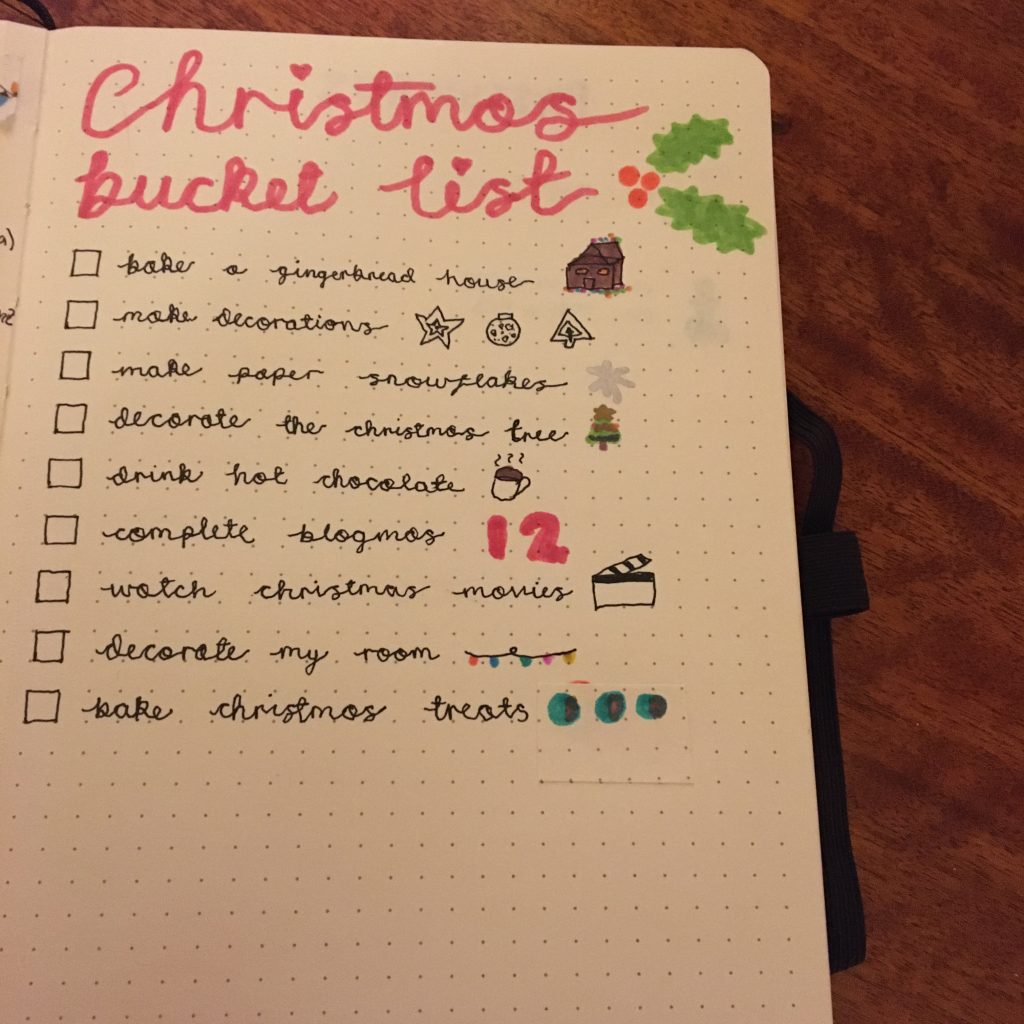 Christmas
bucket list
bake a gingerbread house
make decorations
make paper snowflakes
decorate the christmas tree
drink hot chocolate
complete blogmas 12
watch christmas movies
decorate my room
bake christmas treats